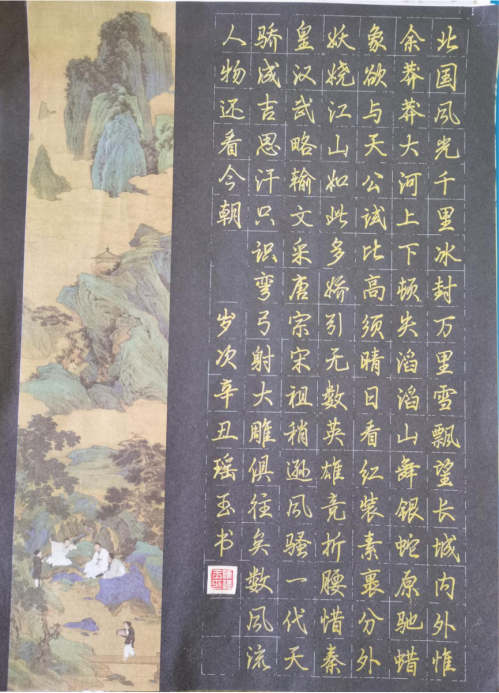 北国风光千里冰封万里雪飘望长城内外惟
余莽莽大河上下顿失滔滔山舞银蛇原驰蜡
象欲与天公试比高须晴日看红装素裹分外
妖娆江山如此多娇引无数英雄竞折腰惜秦
皇汉武略输文采唐宗宋祖稍逊风骚一代天
骄成吉思汗只识弯弓射大雕俱往矣数风流
人物还看今朝 岁次辛丑瑶玉书